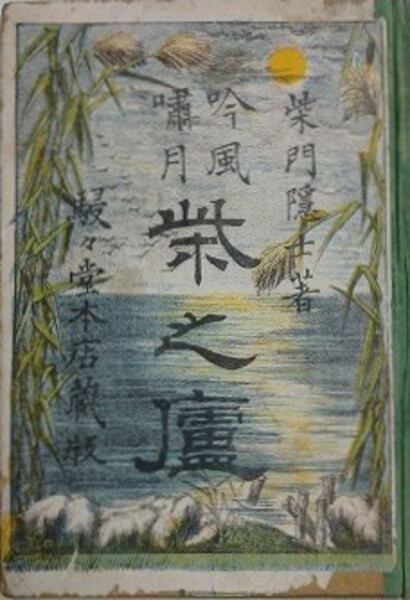 柴門隱士著
吟風
嘯月
柴之廬
駸々堂本店藏版